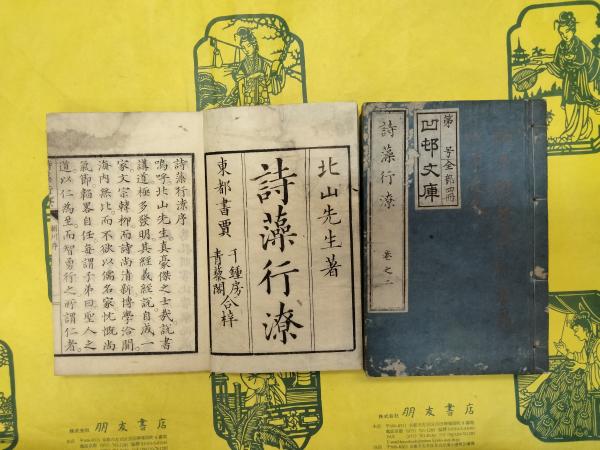 北山先生著
詩藻行潦
東都書賈
千鍾房
青藜閣
合梓
詩藻行潦序
嗚呼北山先生真豪傑之士哉説書
講道極多發明其經義經説自成一
家文宗韓柳而詩尚清新博學洽聞
海内無比而不欲以儒名家忼慨尚
氣節韜畧自任每謂子弟曰聖人之
道以仁為至而智勇行之所謂仁者
第 号全 冊
凹邨文庫
詩藻行潦 卷之二
株式会社 朋友書店
株式会社 朋友書店